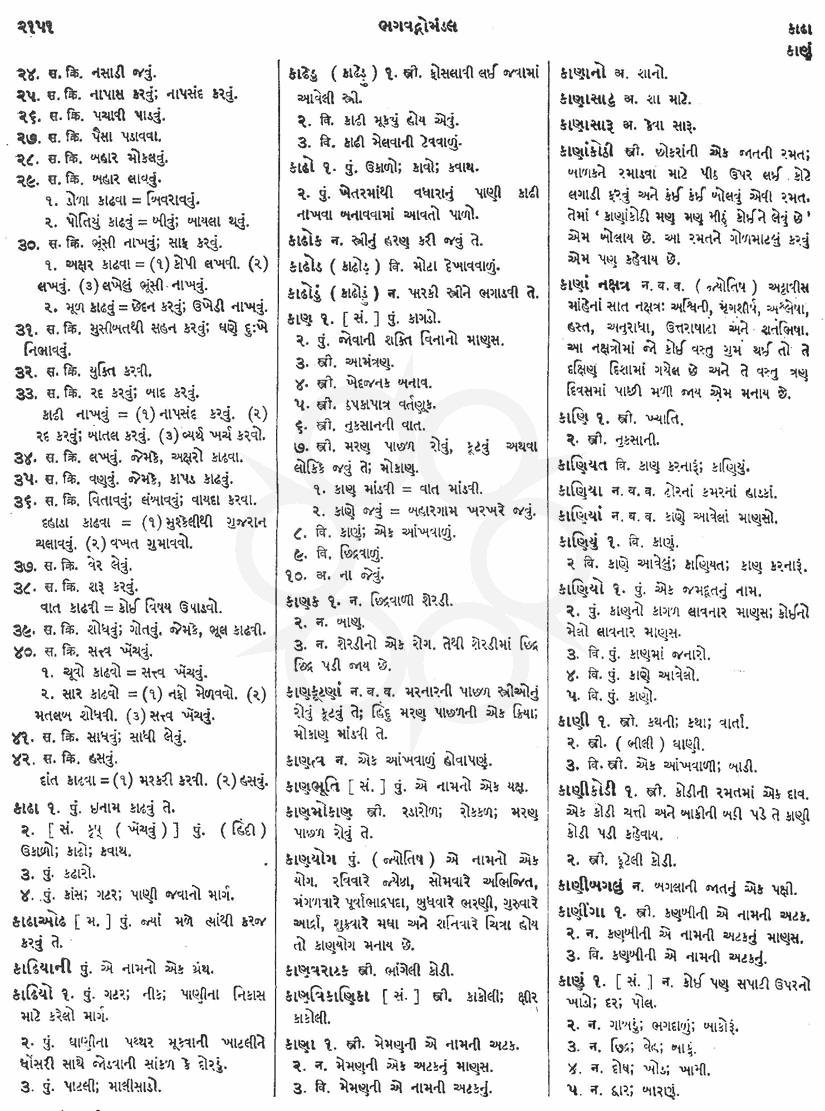 ૨૧૫૧
ભગવદ્ગોમંડલ
કાઢા
કાણું
૨૪. સ. ક્રિ. નસાડી જવું.
૨૫. સ. ક્રિ. નાપાસ કરવું; નાપસંદ કરવું.
૨૬. સ. ક્રિ. પચાવી પાડવું.
૨૭. સ. ક્રિ. પૈસા પડાવવા.
૨૮. સ. ક્રિ. બહાર મોકલવું.
૨૯. સ. ક્રિ. બહાર લાવવું.
૧. ડોળા કાઢવા = બિવરાવવું.
૨. પોતિયું કાઢવું = બીવું; બાયલા થવું.
૩૦. સ. ક્રિ. ભૂંસી નાખવું; સાફ કરવું.
૧. અક્ષર કાઢવા = (૧) કોપી લખવી. (૨)
લખવું. (૩) લખેલું ભૂંસી નાખવું.
૨. મૂળ કાઢવું = છેદન કરવું; ઉખેડી નાખવું.
૩૧. સ. ક્રિ. મુસીબતથી સહન કરવું; ઘણે દુઃખે
નિભાવવું.
૩૨. સ. ક્રિ. યુક્તિ કરવી.
૩૩. સ. ક્રિ. રદ કરવું; બાદ કરવું.
કાઢી નાખવું = (૧) નાપસંદ કરવું. (૨)
રદ કરવું; બાતલ કરવું. (૩) વ્યર્થ ખર્ચ કરવો.
૩૪. સ. ક્રિ. લખવું. જેમકે, અક્ષરો કાઢવા.
૩૫. સ. ક્રિ. વણવું. જેમકે, કાપડ કાઢવું.
૩૬. સ. ક્રિ. વિતાવવું; લંબાવવું; વાયદા કરવા.
દહાડા કાઢવા = (૧) મુશ્કેલીથી ગુજરાન
ચલાવવું. (૨) વખત ગુમાવવો.
૩૭. સ. ક્રિ. વેર લેવું.
૩૮. સ. ક્રિ. શરૂ કરવું.
વાત કાઢવી = કોઈ વિષય ઉપાડવો.
૩૯. સ. ક્રિ. શોધવું; ગોતવું. જેમકે, ભૂલ કાઢવી.
૪૦. સ. ક્રિ. સત્ત્વ ખેંચવું.
૧. ચૂવો કાઢવો = સત્ત્વ ખેંચવું.
૨. સાર કાઢવો = (૧) નફો મેળવવો. (૨)
મતલબ શોધવી. (૩) સત્ત્વ ખેંચવું.
૪૧. સ. ક્રિ. સાધવું; સાધી લેવું.
૪૨. સ. ક્રિ. હસવું.
દાંત કાઢવા = (૧) મશ્કરી કરવી. (૨) હસવું.
કાઢા ૧. પું. ઇનામ કાઢવું તે.
૨. [ સં. કૃષ્ ( ખેંચવું ) ] પું. ( હિંદી )
ઉકાળો; કાઢો; કવાથ.
૩. પું. કઢારો.
૪. પું. કાંસ; ગટર; પાણી જવાનો માર્ગ.
કાઢાઓઢ [ મ. ] પું. જ્યાં મળે ત્યાંથી કરજ
કરવું તે.
કાઢિયાની પું. એ નામનો એક ગ્રંથ.
કાઢિયો ૧. પું. ગટર; નીક; પાણીના નિકાસ
માટે કરેલો માર્ગ.
૨. પું. ઘાણીના પથ્થર મૂકવાની ખાટલીને
ધોંસરી સાથે જોડવાની સાંકળ કે દોરડું.
૩. પું. પાટલી; માલીસાડો.
કાઢેડુ ( કાઢેડું ) ૧. સ્ત્રી. ફોસલાવી લઈ જવામાં
આવેલી સ્ત્રી.
૨. વિ. કાઢી મૂકયું હોય એવું.
૩. વિ. કાઢી મેલવાની ટેવવાળું.
કાઢો ૧. પું. ઉકાળો; કાવો; કવાથ.
૨. પું. ખેતરમાંથી વધારાનું પાણી કાઢી
નાખવા બનાવવામાં આવતો પાળો.
કાઢોક ન. સ્ત્રીનું હરણ કરી જવું તે.
કાઢોડ ( કાઢોડ ) વિ. મોટા દેખાવવાળું.
કાઢોડું ( કાઢોડું ) ન. પારકી સ્ત્રીને ભગાડવી તે.
કાણ ૧. [ સં. ] પું. કાગડો.
૨. પું. જોવાની શક્તિ વિનાનો માણસ.
૩. સ્ત્રી. આમંત્રણ.
૪. સ્ત્રી. ખેદજનક બનાવ.
૫. સ્ત્રી. ઠપકાપાત્ર વર્તણૂક.
૬. સ્ત્રી. નુકસાનની વાત.
૭. સ્ત્રી. મરણ પાછળ રોવું, કૂટવું અથવા
લૌકિકે જવું તે; મોકાણ.
૧. કાણ માંડવી = વાત માંડવી.
૨. કાણે જવું = બહારગામ ખરખરે જવું.
૮. વિ. કાણું; એક આંખવાળું.
૯. વિ. છિદ્રવાળું.
૧૦. અ. ના જેવું.
કાણક ૧. ન. છિદ્રવાળી શેરડી.
૨. ન. બાણુ.
૩. ન. શેરડીનો એક રોગ. તેથી શેરડીમાં છિદ્ર
છિદ્ર પડી જાય છે.
કાણકૂટણાં ન. બ. વ. મરનારની પાછળ સ્ત્રીઓનું
રોવું કૂટવું તે; હિંદુ મરણ પાછળની એક ક્રિયા;
મોકાણ માંડવી તે.
કાણત્વ ન. એક આંખવાળું હોવાપણું.
કાણભૂતિ [ સં. ] પું. એ નામનો એક યક્ષ.
કાણમોકાણ સ્ત્રી. રડારોળ; રોકકળ; મરણ
પાછળ રોવું તે.
કાણયોગ પું. ( જ્યોતિષ ) એ નામનો એક
યોગ. રવિવારે જ્યેષ્ઠા, સોમવારે અભિજિત,
મંગળવારે પૂર્વાભાદ્રપદા, બુધવારે ભરણી, ગુરુવારે
આર્દ્રા, શુક્રવારે મઘા અને શનિવારે ચિત્રા હોય
તો કાણયોગ મનાય છે.
કાણવરાટક સ્ત્રી. ભાંગેલી કોડી.
કાણવિકાણિકા [ સં. ] સ્ત્રી. કાકોલી; ક્ષીર
કાકોલી.
કાણા ૧. સ્ત્રી. મેમણની એ નામની અટક.
૨. ન. મેમણની એક અટકનું માણસ.
૩. વિ. મેમણની એ નામની અટકનું.
કાણાનો અ. શાનો.
કાણાસાટુ અ. શા માટે.
કાણાસારૂ અ. કેવા સારૂ.
કાણાંકોઠી સ્ત્રી. છોકરાંની એક જાતની રમત;
બાળકને રમાડવા માટે પીઠ ઉપર લઈ કોટે
લગાડી ફરવું અને કંઈ કંઈ બોલવું એવી રમત.
તેમાં ‘ કાણાંકોઠી મણુ મણુ મીઠું કોઈને લેવું છે ’
એમ બોલાય છે. આ રમતને ગોળમાટલું કરવું
એમ પણ કહેવાય છે.
કાણાં નક્ષત્ર ન. બ. વ. ( જ્યોતિષ ) અઠ્ઠાવીસ
માંહેનાં સાત નક્ષત્ર: અશ્વિની, મૃગશીર્ષ, અશ્લેષા,
હસ્ત, અનુરાધા, ઉત્તરાષાઢા અને શતભિષા.
આ નક્ષત્રોમાં જો કોઈ વસ્તુ ગુમ થઈ તો તે
દક્ષિણ દિશામાં ગયેલ છે અને તે વસ્તુ ત્રણ
દિવસમાં પાછી મળી જાય એમ મનાય છે.
કાણિ ૧. સ્ત્રી. ખ્યાતિ.
૨. સ્ત્રી. નુકસાની.
કાણિયત વિ. કાણ કરનારૂં; કાણિયું.
કાણિયા ન. બ. વ. ઢોરનાં કમરનાં હાડકાં.
કાણિયાં ન. બ. વ. કાણે આવેલાં માણસો.
કાણિયું ૧. વિ. કાણું.
૨ વિ. કાણે આવેલું; કાણિયત; કાણ કરનારૂં.
કાણિયો ૧. પું. એક જમદૂતનું નામ.
૨. પું. કાણનો કાગળ લાવનાર માણસ; કોઈનો
મેલો લાવનાર માણસ.
૩. વિ. પું. કાણમાં જનારો.
૪. વિ. પું. કાણે આવેલો.
૫. વિ. પું. કાણો.
કાણી ૧. સ્ત્રી. કથની; કથા; વાર્તા.
૨. સ્ત્રી. ( ભીલી ) ઘાણી.
૩. વિ. સ્ત્રી. એક આંખવાળી; બાડી.
કાણીકોડી ૧. સ્ત્રી. કોડીની રમતમાં એક દાવ.
એક કોડી ચત્તી અને બાકીની બઠી પડે તે કાણી
કોડી પડી કહેવાય.
૨. સ્ત્રી. ફૂટેલી કોડી.
કાણીબગલું ન. બગલાની જાતનું એક પક્ષી.
કાણીંગા ૧. સ્ત્રી. કણબીની એ નામની અટક.
૨. ન. કણબીની એ નામની અટકનું માણસ.
૩. વિ. કણબીની એ નામની અટકનું.
કાણું ૧. [ સં. ] ન. કોઈ પણ સપાટી ઉપરનો
ખાડો; દર; પોલ.
૨. ન. ગાબડું; ભગદાળું; બાકોરૂં.
૩. ન. છિદ્ર; વેહ; બાકું.
૪. ન. દોષ; ખોડ; ખામી.
૫. ન. દ્વાર; બારણું.